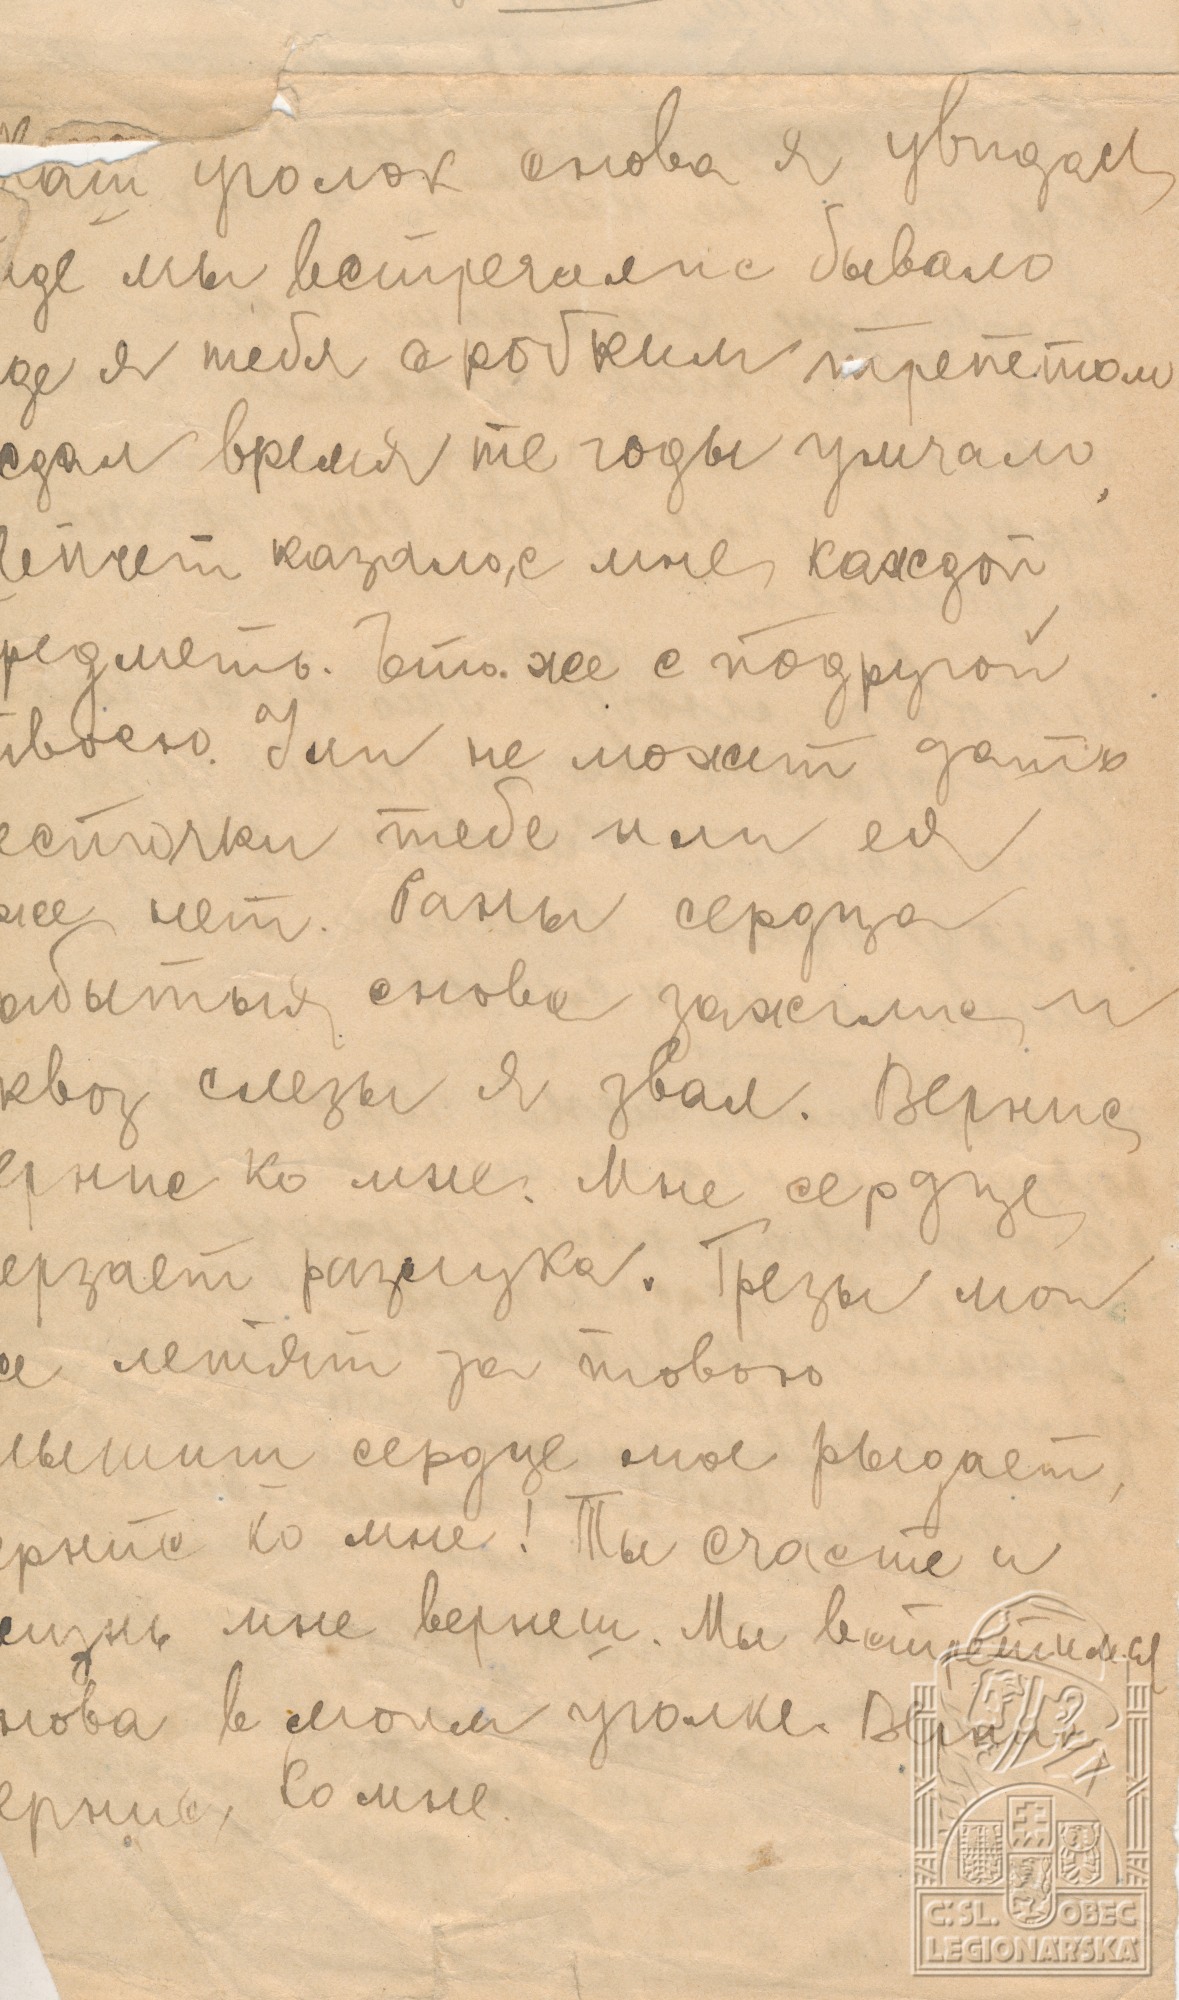 наш уголок снова я увидал
где мы встречалис бывало
де я тебя с робким трепетом
ждал время те годы умчало,
Шепчет казалос мне каждой
редметъ. Ъто же с подругой
твоею. Или не можит дать
есточки тебе или ея
же нет. Раны сердца
абытыя снова зажглис и
квоз слезы я звал. Вернис
ернис ко мне. Мне сердце
ерзает разлука. Грезы мои
се летят за товою
лышит сердце мое рыдает,
ернис ко мне! Ты счасте и
жизнь мне вернеш. Мы встретимся
нова в моем уголке. Вернис
ернис ко мне.
Č.SL. OBEC
LEGIONÁŘSKÁ